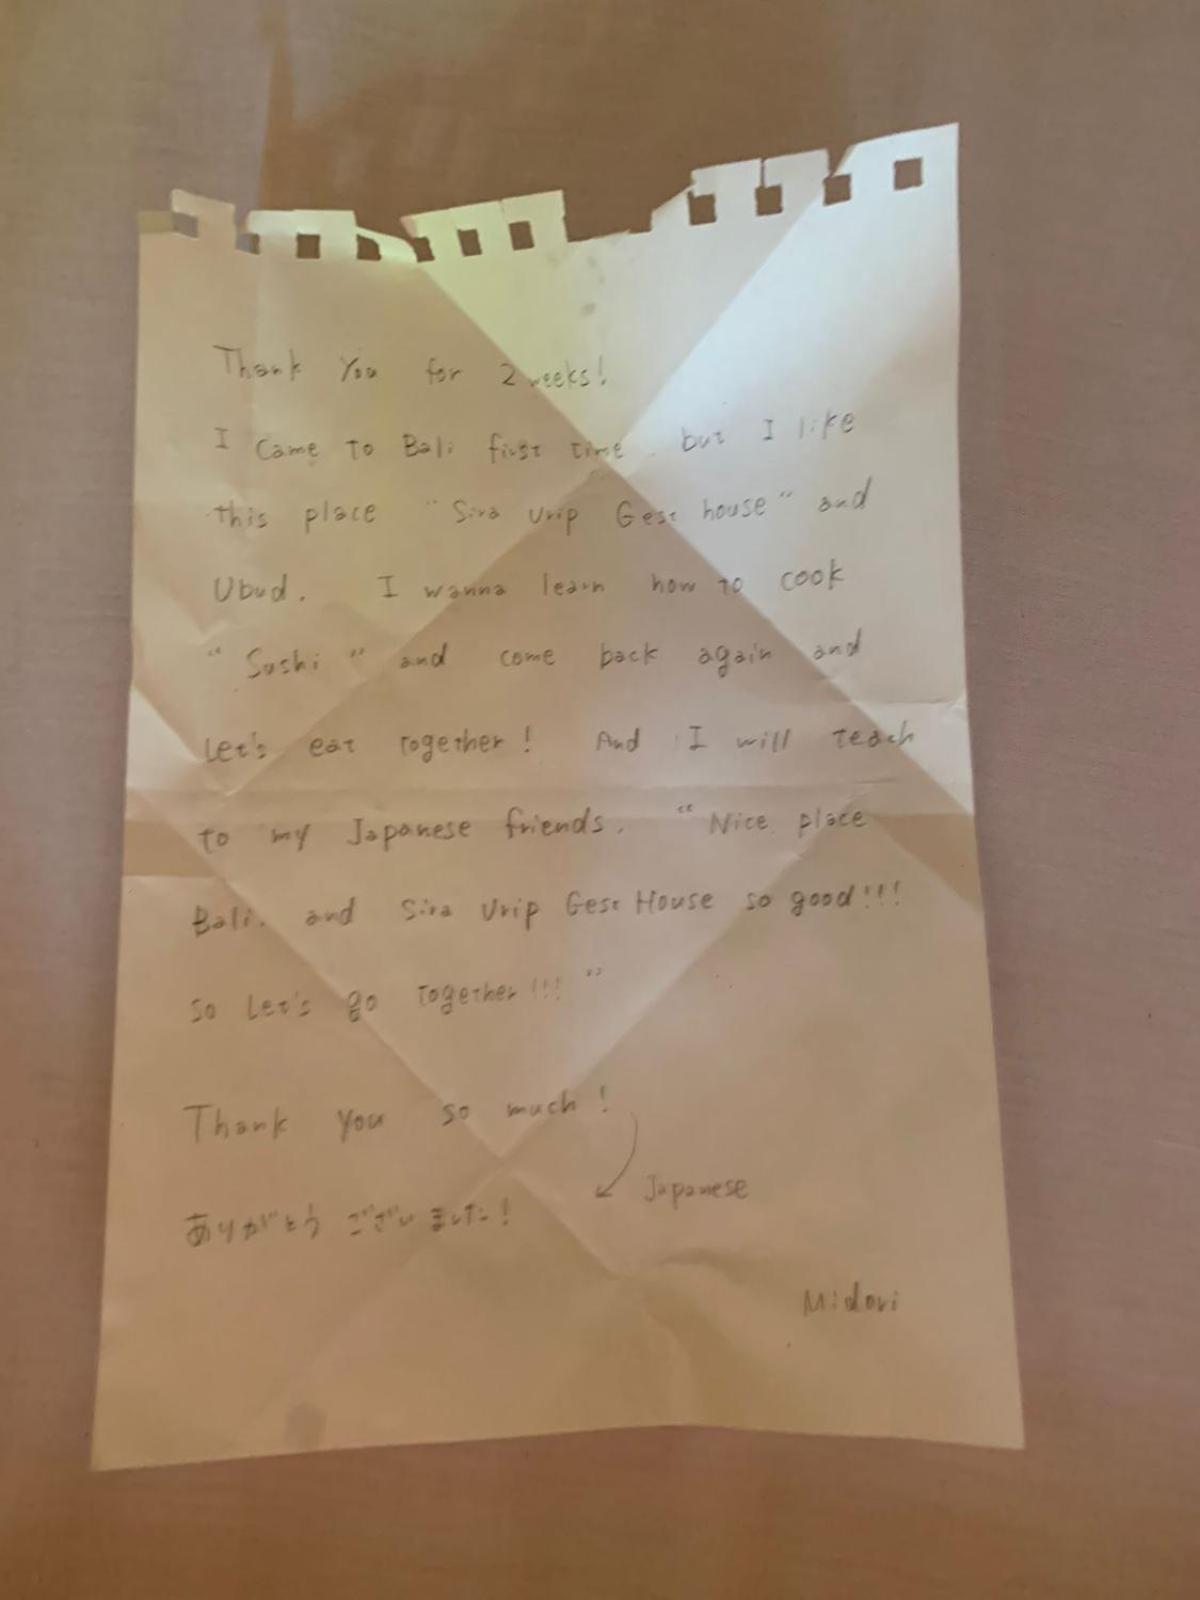 Thank you for 2 weeks!
I came to Bali first time. but I like
this place "Sira Urip Gest house" and
Ubud. I wanna learn how to cook
"Sushi" and come back again and
Let's eat together! And I will teach
to my Japanese friends. "Nice place
Bali. and Sira Urip Gest House so good!!!
so Let's go together!!!"
Thank you so much!
Japanese
ありがとう ございました!
Midori